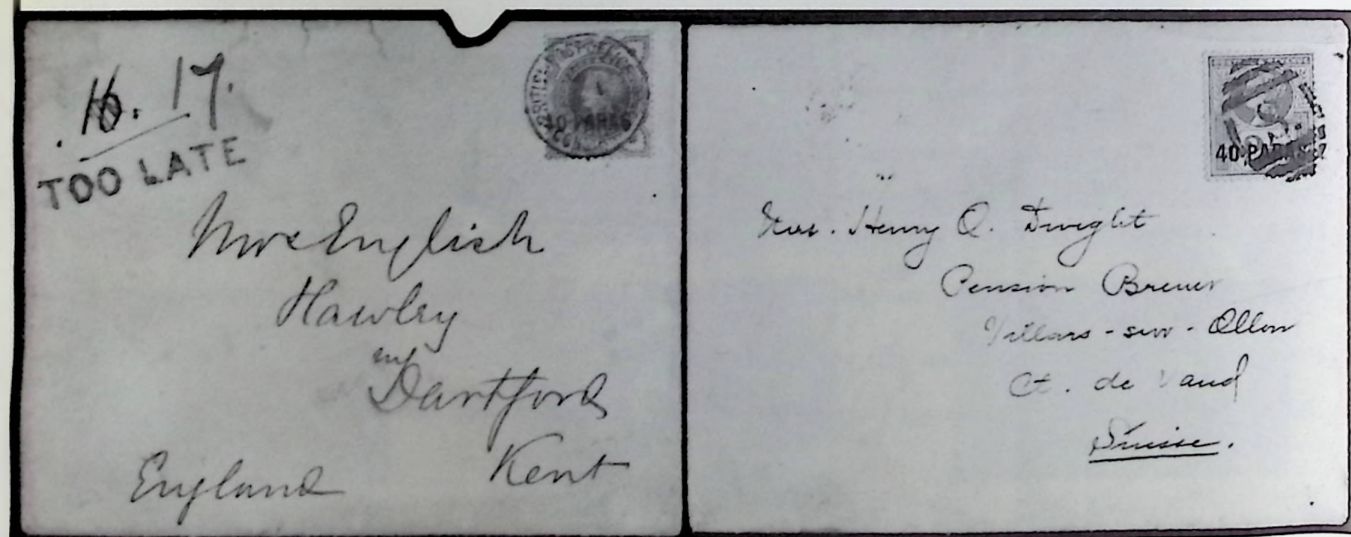 16. 17.
TOO LATE
BRITISH POST OFFICE
40 PARAS
Mrs English
Hawley
nr
Dartford
Kent
England
40 PARAS
Mrs. Henry O. Dwight
Pension Breuer
Villars-sur-Ollon
Ct. de Vaud
Suisse.